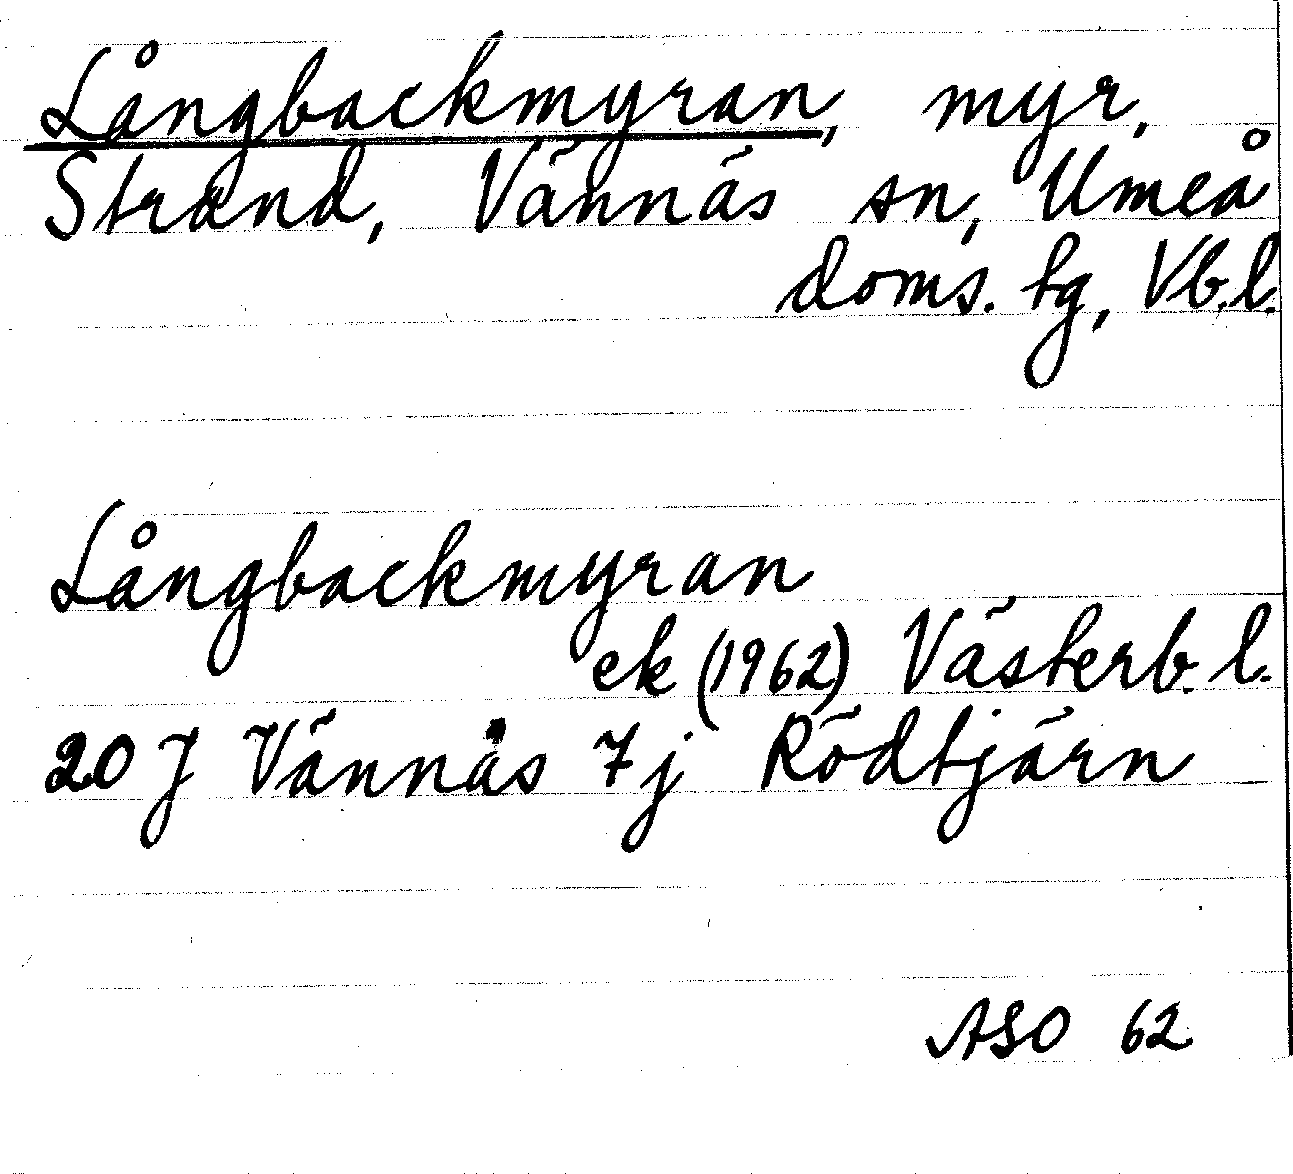 Långbackmyran, myr,
Strand, Vännäs sn, Umeå
doms. tg, Vb.l.
Långbackmyran
ek (1962) Västerb. l.
20 J Vännäs 7j Rödtjärn
ASO 62